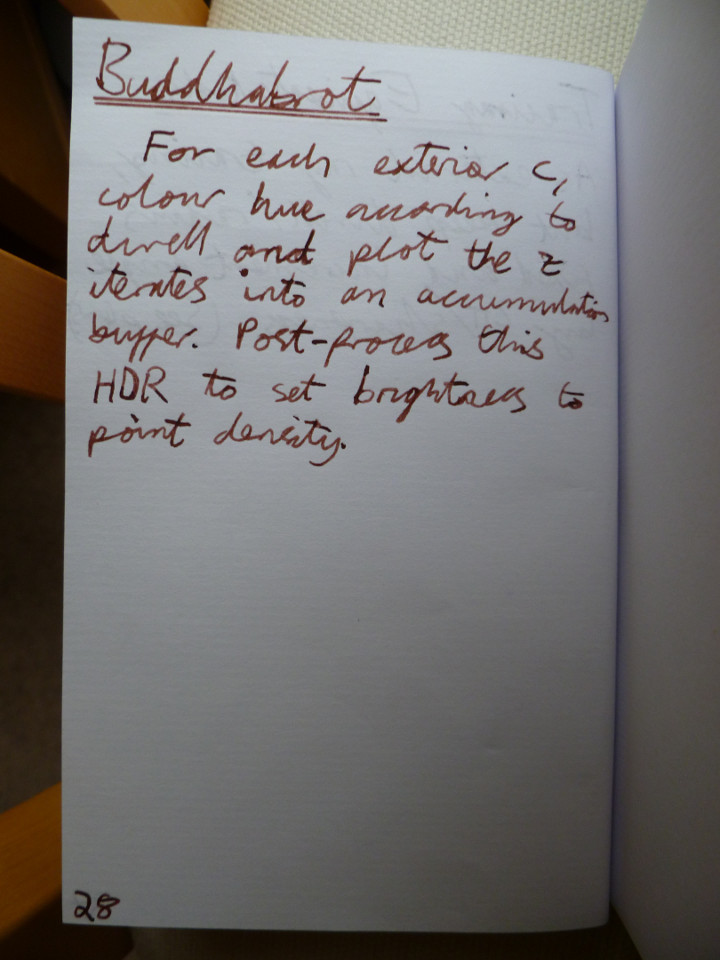 Buddhabrot
For each exterior c,
colour hue according to
dwell and plot the z
iterates into an accumulation
buffer. Post-process this
HDR to set brightness to
point density.
28